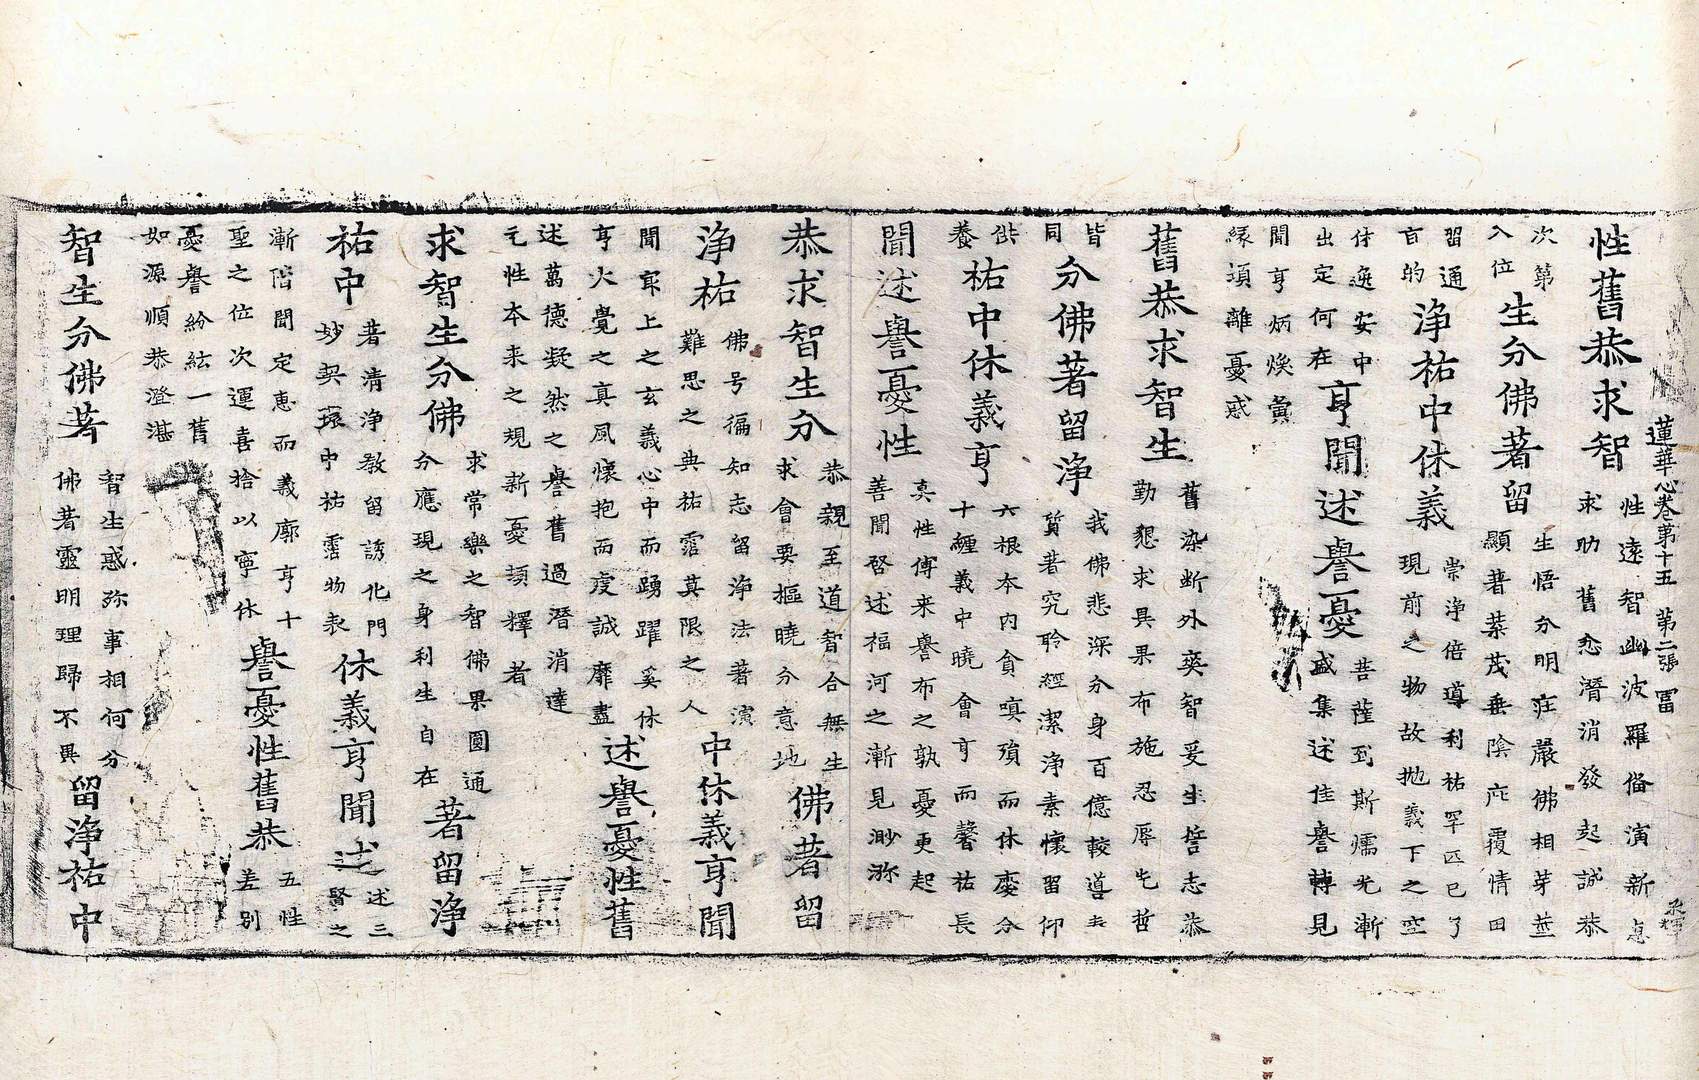 蓮華心卷第十五 第二張 冨
性舊恭求智
性遠智幽波羅俻演新息
求助舊愆潛消發起誠恭
次第
入位
生分佛著留
生悟分明莊嚴佛相芽莖
顯著葉茂垂陰庇覆情田
習通
百的
浄祐中休義
崇浄倍導利祐罕匹已了
現前之物故抛義下之空
付逸安中
出定何在
亨聞述譽憂
菩薩到斯爥光漸
盛集述佳譽轉見
聞亨炳煥黄
縁頊離憂惑
舊恭求智生
舊染断外奕智爰生誓志恭
勤懇求其果布施忍辱乞哲
皆
同
分佛著留浄
我佛悲深分身百億較導
質著究聆經潔浄素懷留仰
供
養
祐中休義亨
六根本内貪嗔殞而休廢分
十纏義中曉會亨而馨祐長
聞述譽憂性
真性傅来譽布之孰憂更起
善聞啓述福河之漸見渺弥
恭求智生分
恭親至道智合無生
求會要樞曉分意地
佛著留
浄祐
佛号徧知志留浄法著演
難思之典祐霑莫限之人
中休義亨聞
聞㝡上之玄義心中而踴躍奚休
亨火覺之真風懷抱而虔誠靡盡
述譽憂性舊
述萬德凝然之譽舊過潛消達
元性本来之規新憂頊釋者
求智生分佛
求常樂之智佛果圓通
分應現之身利生自在
著留浄
祐中
著清浄教留誘化門
妙契環中祐霑物表
休義亨聞述
述三
賢之
漸階聞定恵而義廓亨十
聖之位次運喜捨以寧休
譽憂性舊恭
五性
差别
憂譽紛紜一舊
如源順恭澄湛
智生分佛著
智生惑弥事相何分
佛著靈明理歸不異
留浄祐中